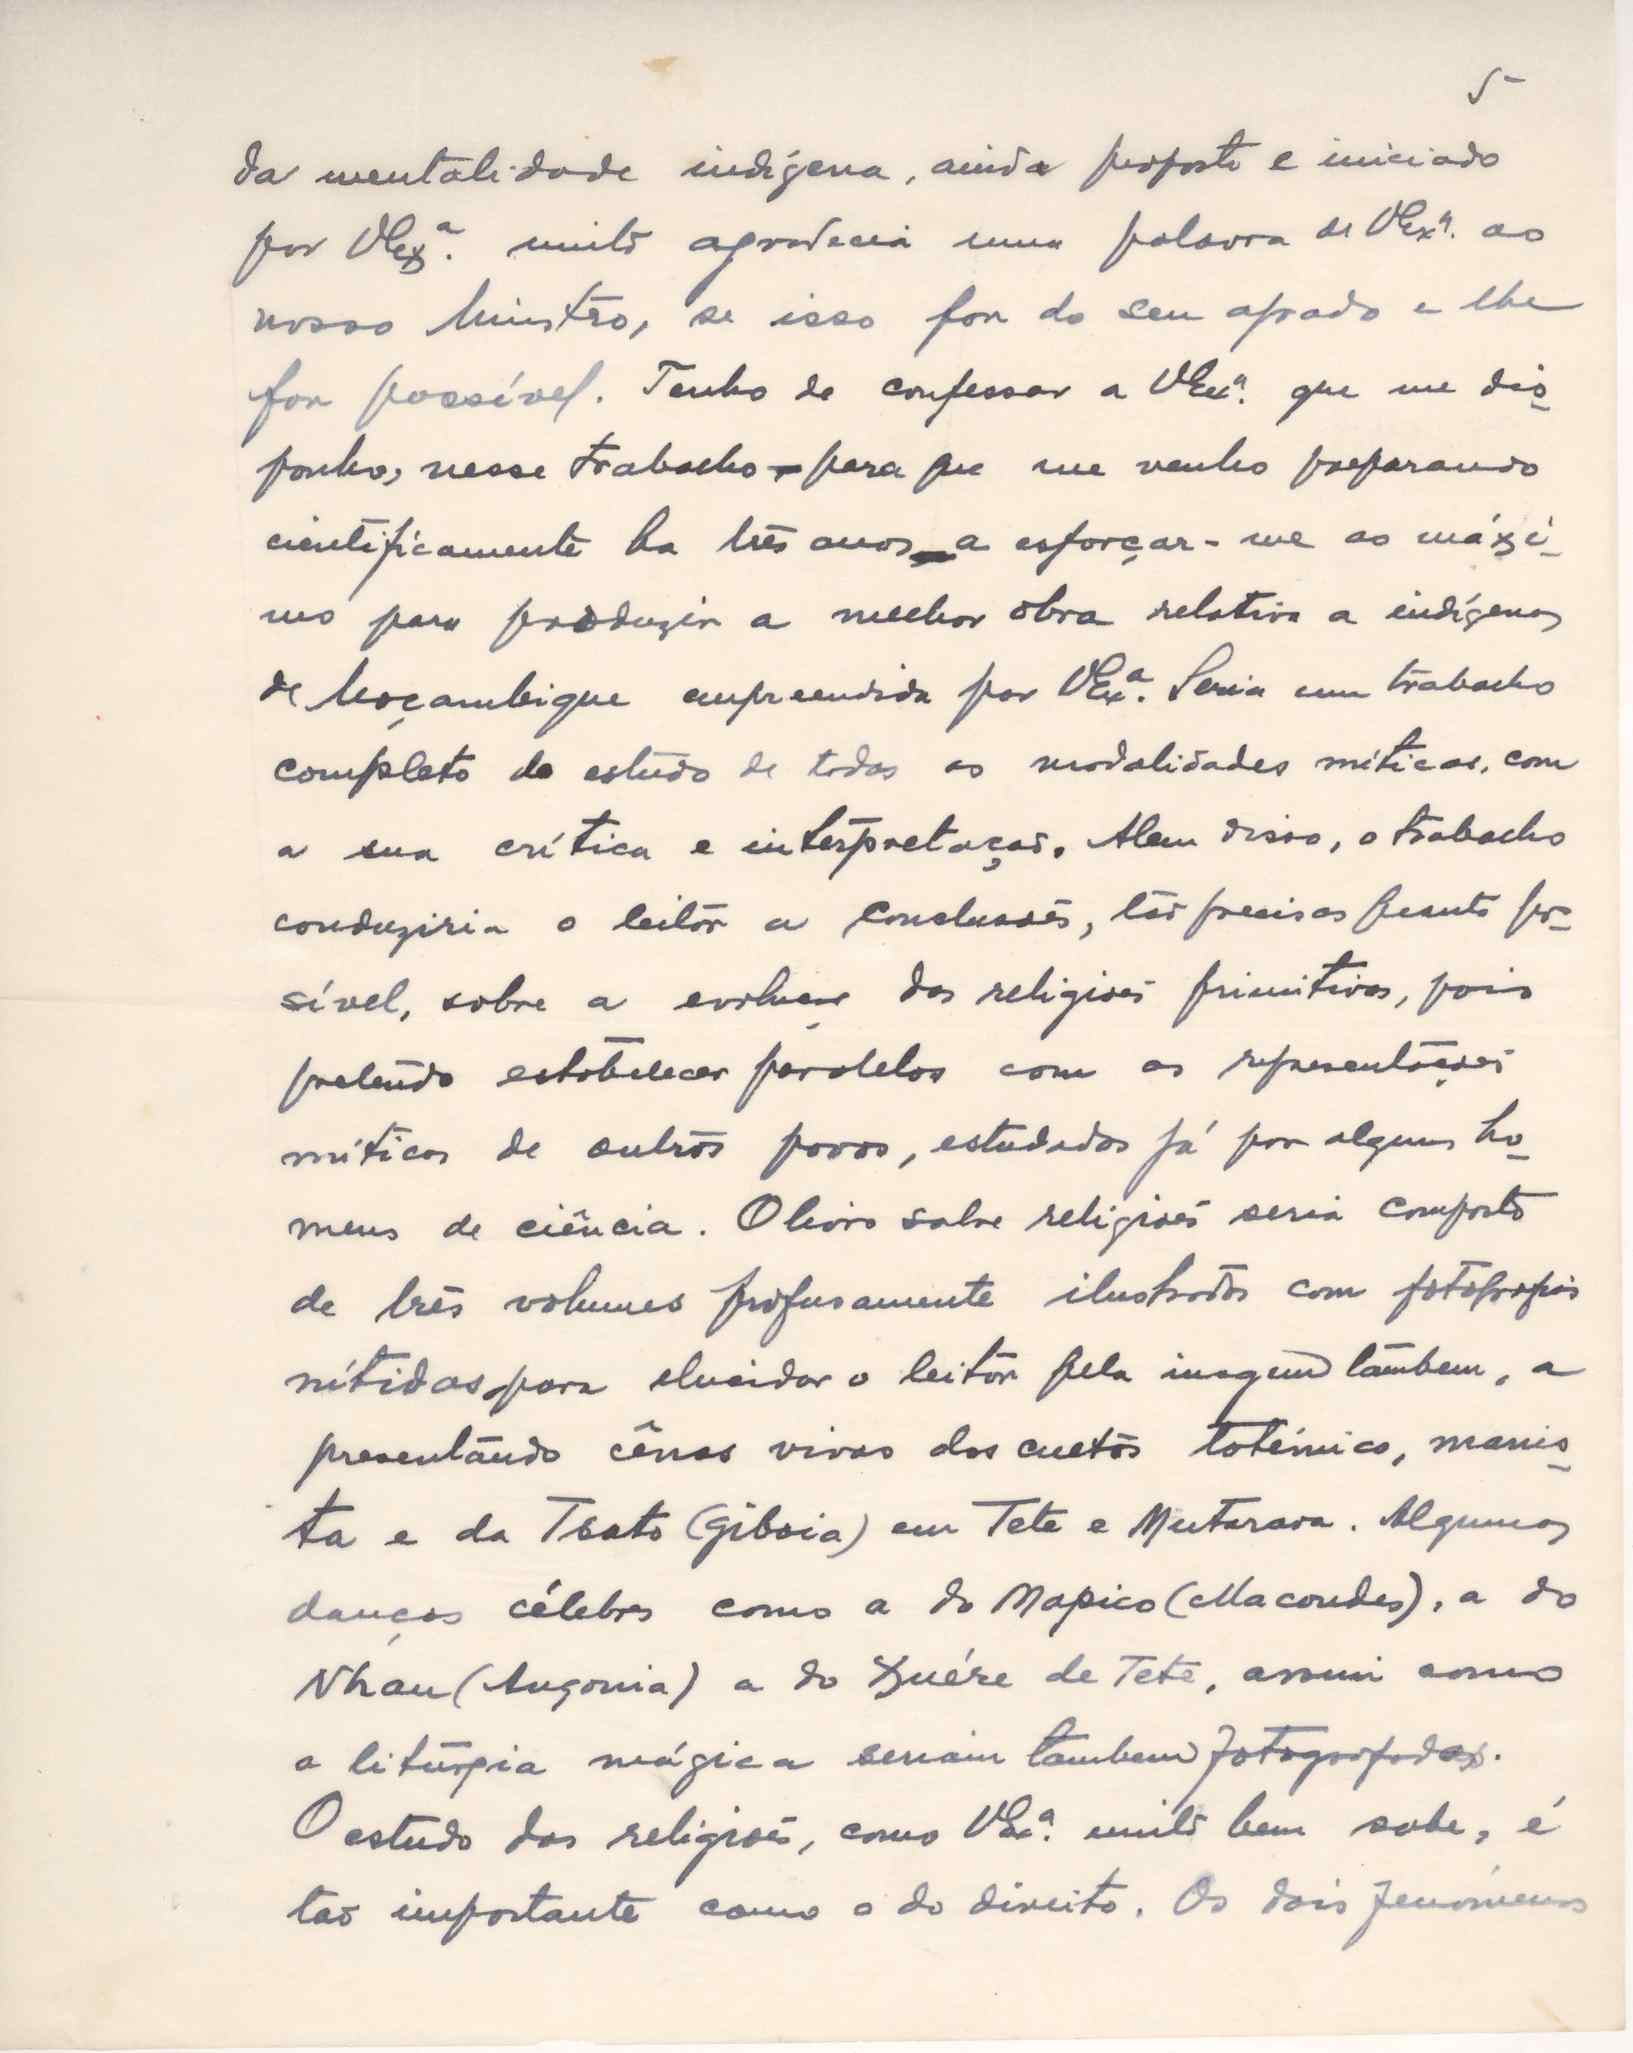 5
da mentalidade indígena, ainda proposto e iniciado
por VExª. muito agradecia uma palavra de VExª. ao
nosso Ministro, se isso for do seu agrado e lhe
for possível. Tenho de confessar a VExª. que me dis-
ponho, nesse trabalho - para que me venho preparando
cientificamente ha três anos - a esforçar-me ao máxi-
mo para produzir a melhor obra relativa a indígenas
de Moçambique empreendida por VExª. Seria um trabalho
completo do estudo de todas as modalidades míticas, com
a sua crítica e interpretação. Alem disso, o trabalho
conduziria o leitor a conclusões, tão precisas quanto pos-
sível, sobre a evolução das religiões primitivas, pois
pretendo estabelecer paralelos com as representações
míticas de outros povos, estudados já por alguns ho-
mens de ciência. O livro sobre religiões seria composto
de três volumes profusamente ilustrados com fotografias
nítidas para elucidar o leitor pela imagem tambem, a
presentando cênas vivas dos cultos totémico, manis-
ta e da Tsato (Giboia) em Tete e Mutarara. Algumas
danças célebres como a do Mapico (Macondes), a do
Nhau (Angonia) a do de Tete, assim como
a litúrgia mágica seriam tambem fotografadas.
O estudo das religiões, como VExª. muito bem sabe, é
tao importante como o do direito. Os dois fenómenos